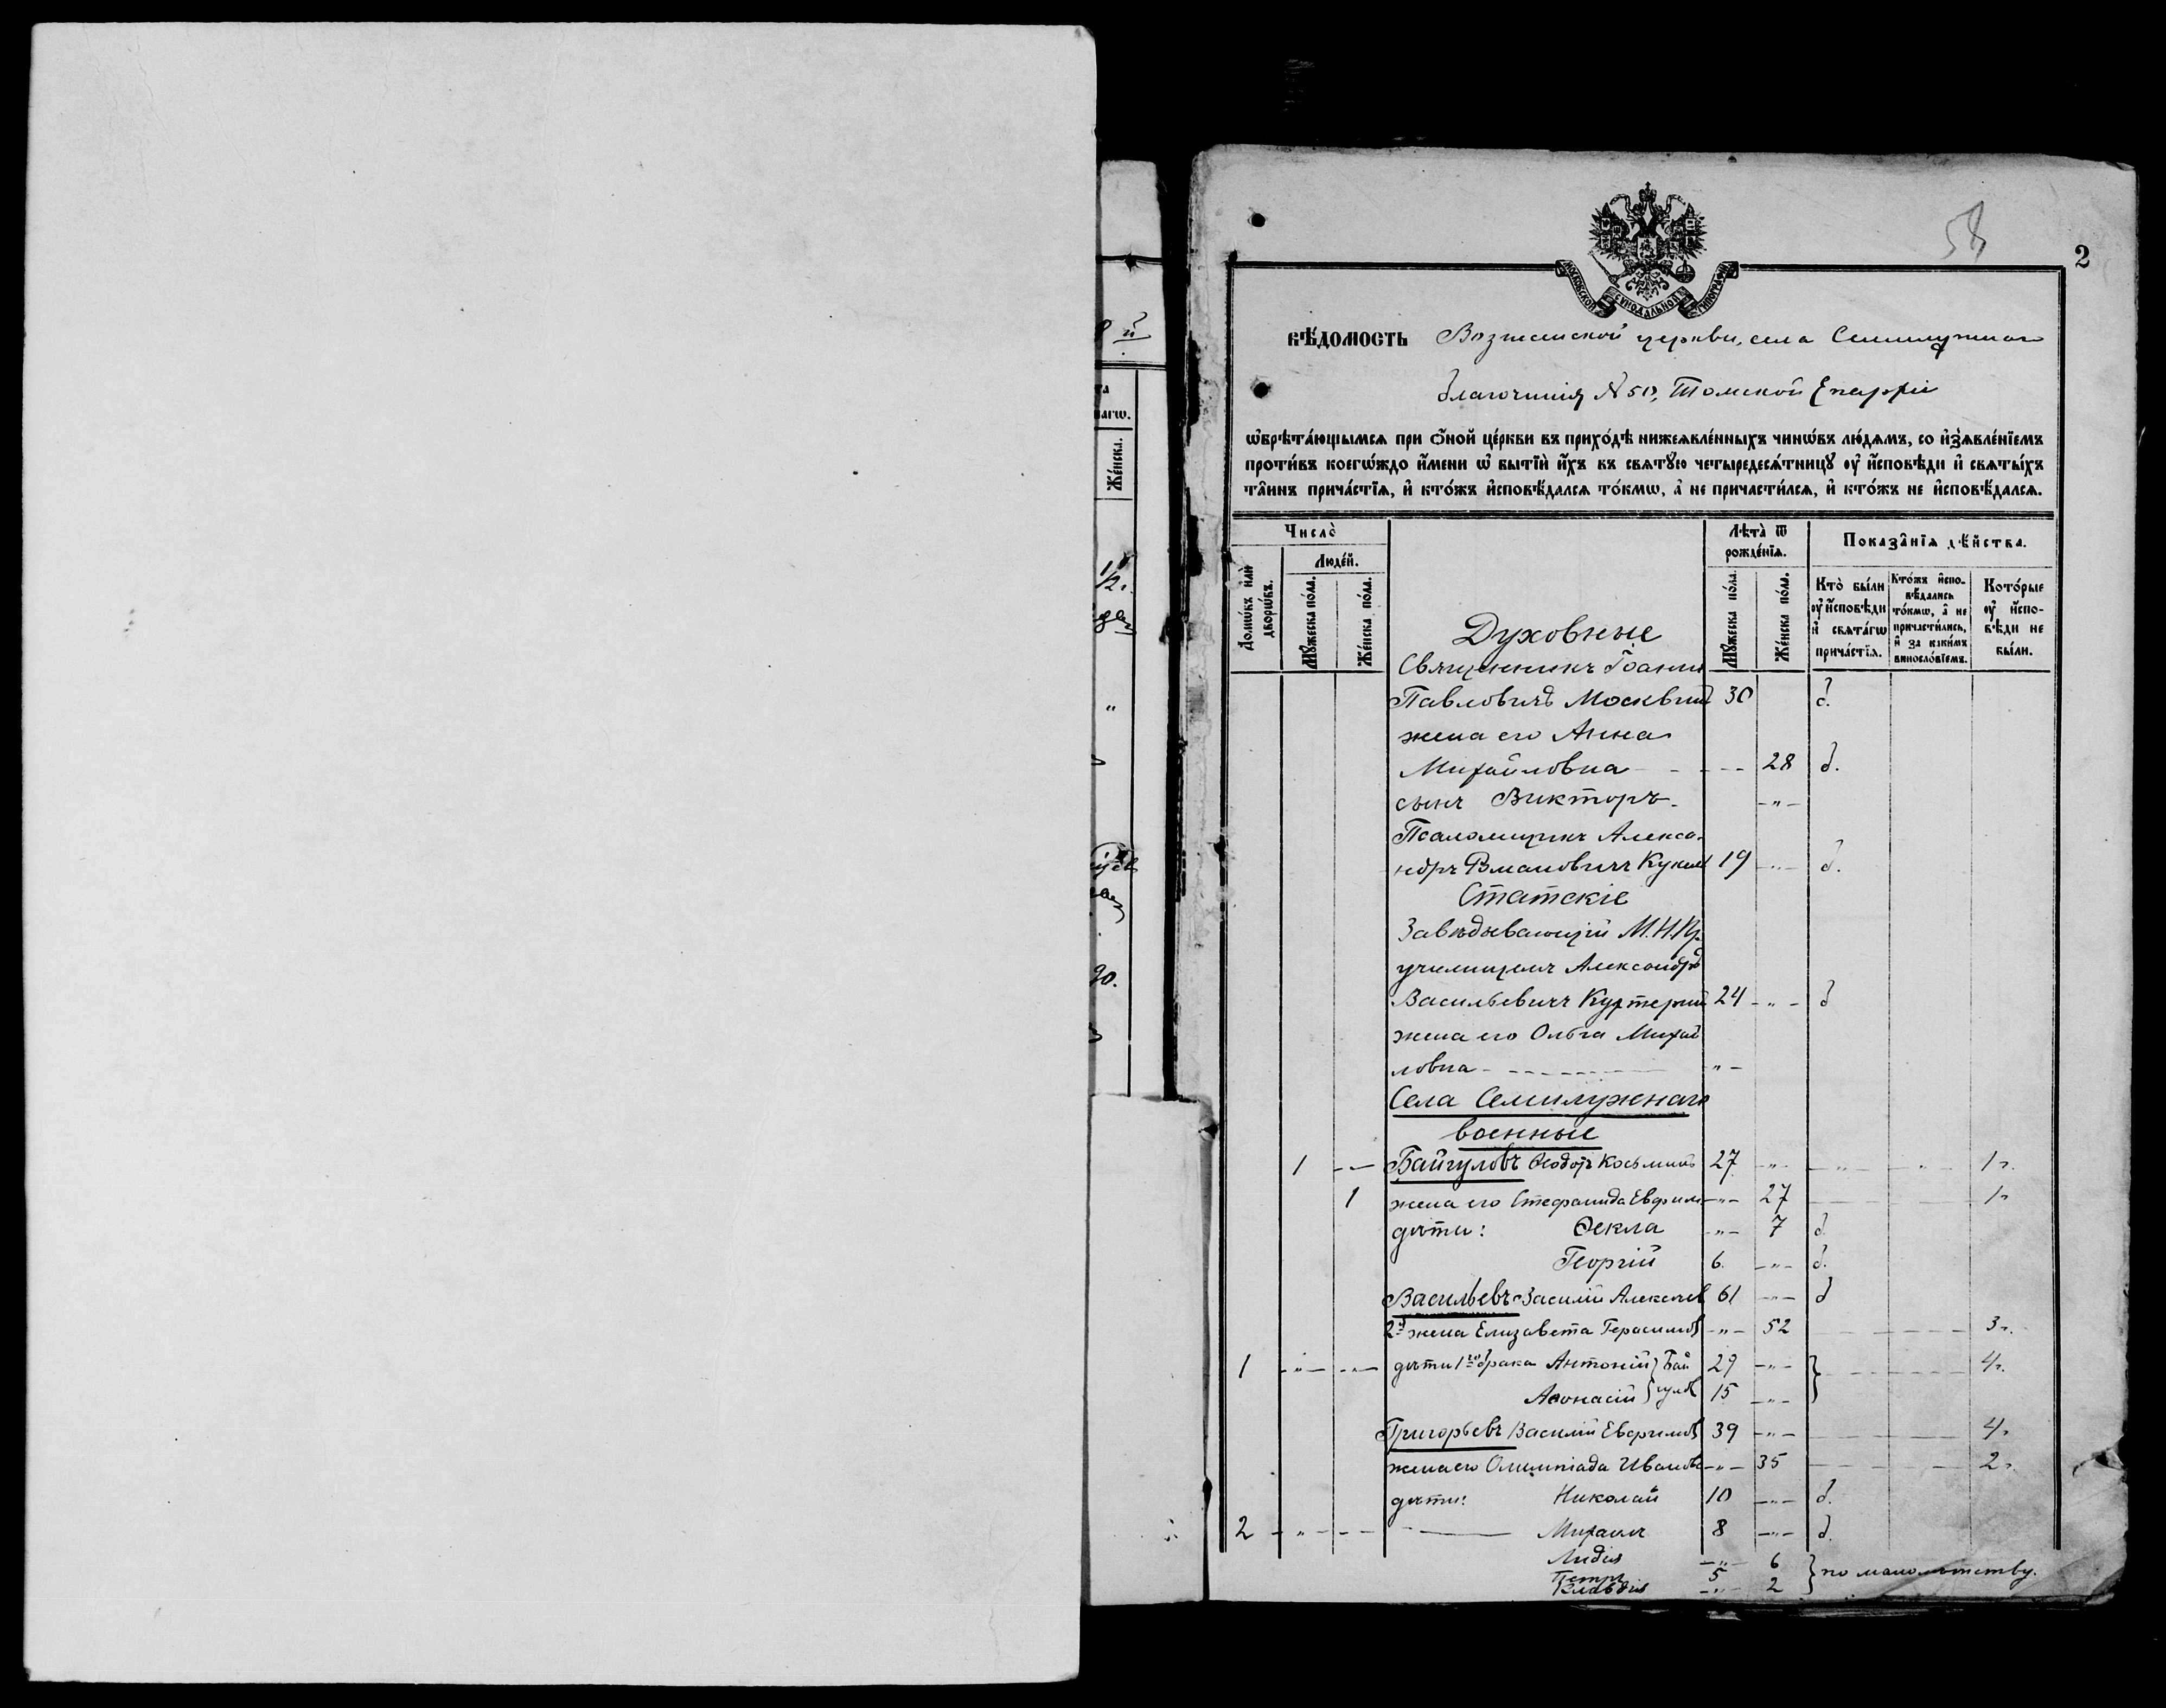 58
2
МОСКОВСКОЙ СѴНОДАЛЬНОЙ ТИПОГРАФІИ
вѣ́домость Вознесенской церкви, села Семилужнаго
благочинія № 50, Томской Епархіи
ѡ҆брѣта́ющымсѧ при ѻ҆́ной це́ркви въ прихо́дѣ нижеѧвле́нныхъ чинѡ́въ лю́дѧмъ, со и҆з̾ѧвле́нїемъ
проти́въ коегѡ́ждо и҆́мени ѡ҆ бытїѝ и҆́хъ въ свѧтꙋ́ю четыредесѧ́тницꙋ ᲂу҆ и҆́сповѣди и҆ свѧты́хъ
та̑инъ прича́стїѧ, и҆ кто́жъ и҆сповѣ́далсѧ то́кмѡ, а҆ не причасти́лсѧ, и҆ кто́жъ не и҆сповѣ́далсѧ.
Число̀
Люде́й.
Домѡ́въ и҆лѝ дворѡ́въ.
Мꙋ́жеска по́ла.
Же́нска по́ла.
Лѣ́та ѿ рожде́нїѧ.
Мꙋ́жеска по́ла.
Же́нска по́ла.
Показа̑нїѧ дѣ́йства.
Кто̀ бы́ли ᲂу҆ и҆́сповѣди и҆ свѧта́гѡ прича́стїѧ.
Кто́жъ и҆спо-вѣ́дались то́кмѡ, а҆ не причасти́лись, и҆ за каки́мъ винослов́їемъ.
Кото́рые ᲂу҆ и҆́спо-вѣди не бы́ли.
Духовные
Священникъ Іоаннъ
Павловичъ Москвинъ 30 б.
жена его Анна
Михайловна - - - 28 б.
сынъ Викторъ. - " -
Псаломщикъ Алекса-
ндръ 19 - " - б.
Статскіе
Завѣдывающій М.Н.Пр.
училищемъ Александръ
Васильевичъ 24 - " - б
жена его Ольга Михай
ловна - - - - " -
Села Семилужнаго
военные
1 - - Байгуловъ Ѳеодоръ Косьминъ 27 - " - - " - " - 1 г.
1 жена его Стефанида Евфим. - " - 27 - - - 1 г.
дѣти: Ѳекла - " - 7 б.
Георгій 6. - " - б.
Васильевъ Василій Алексѣев 61 - " - б
2я жена Елизавета Герасимов - " - 52 - - - 3 г.
1 - " - - " - дѣти 1го брака Антоній } Бай 29 - " - } - - - 4 г.
Аѳонасій } гулов 15 - " -
Григорьевъ Василій Евфимов 39 - " - - - - 4 г.
жена его Олимпіада Иванов - " - 35 - - - 2 г.
дѣти: Николай 10 - " - б.
2 - " - - - - Михаилъ 8 - " - б.
Лидія - " - 6
Петръ 5 } по малолѣтству.
Клавдія - " - 2